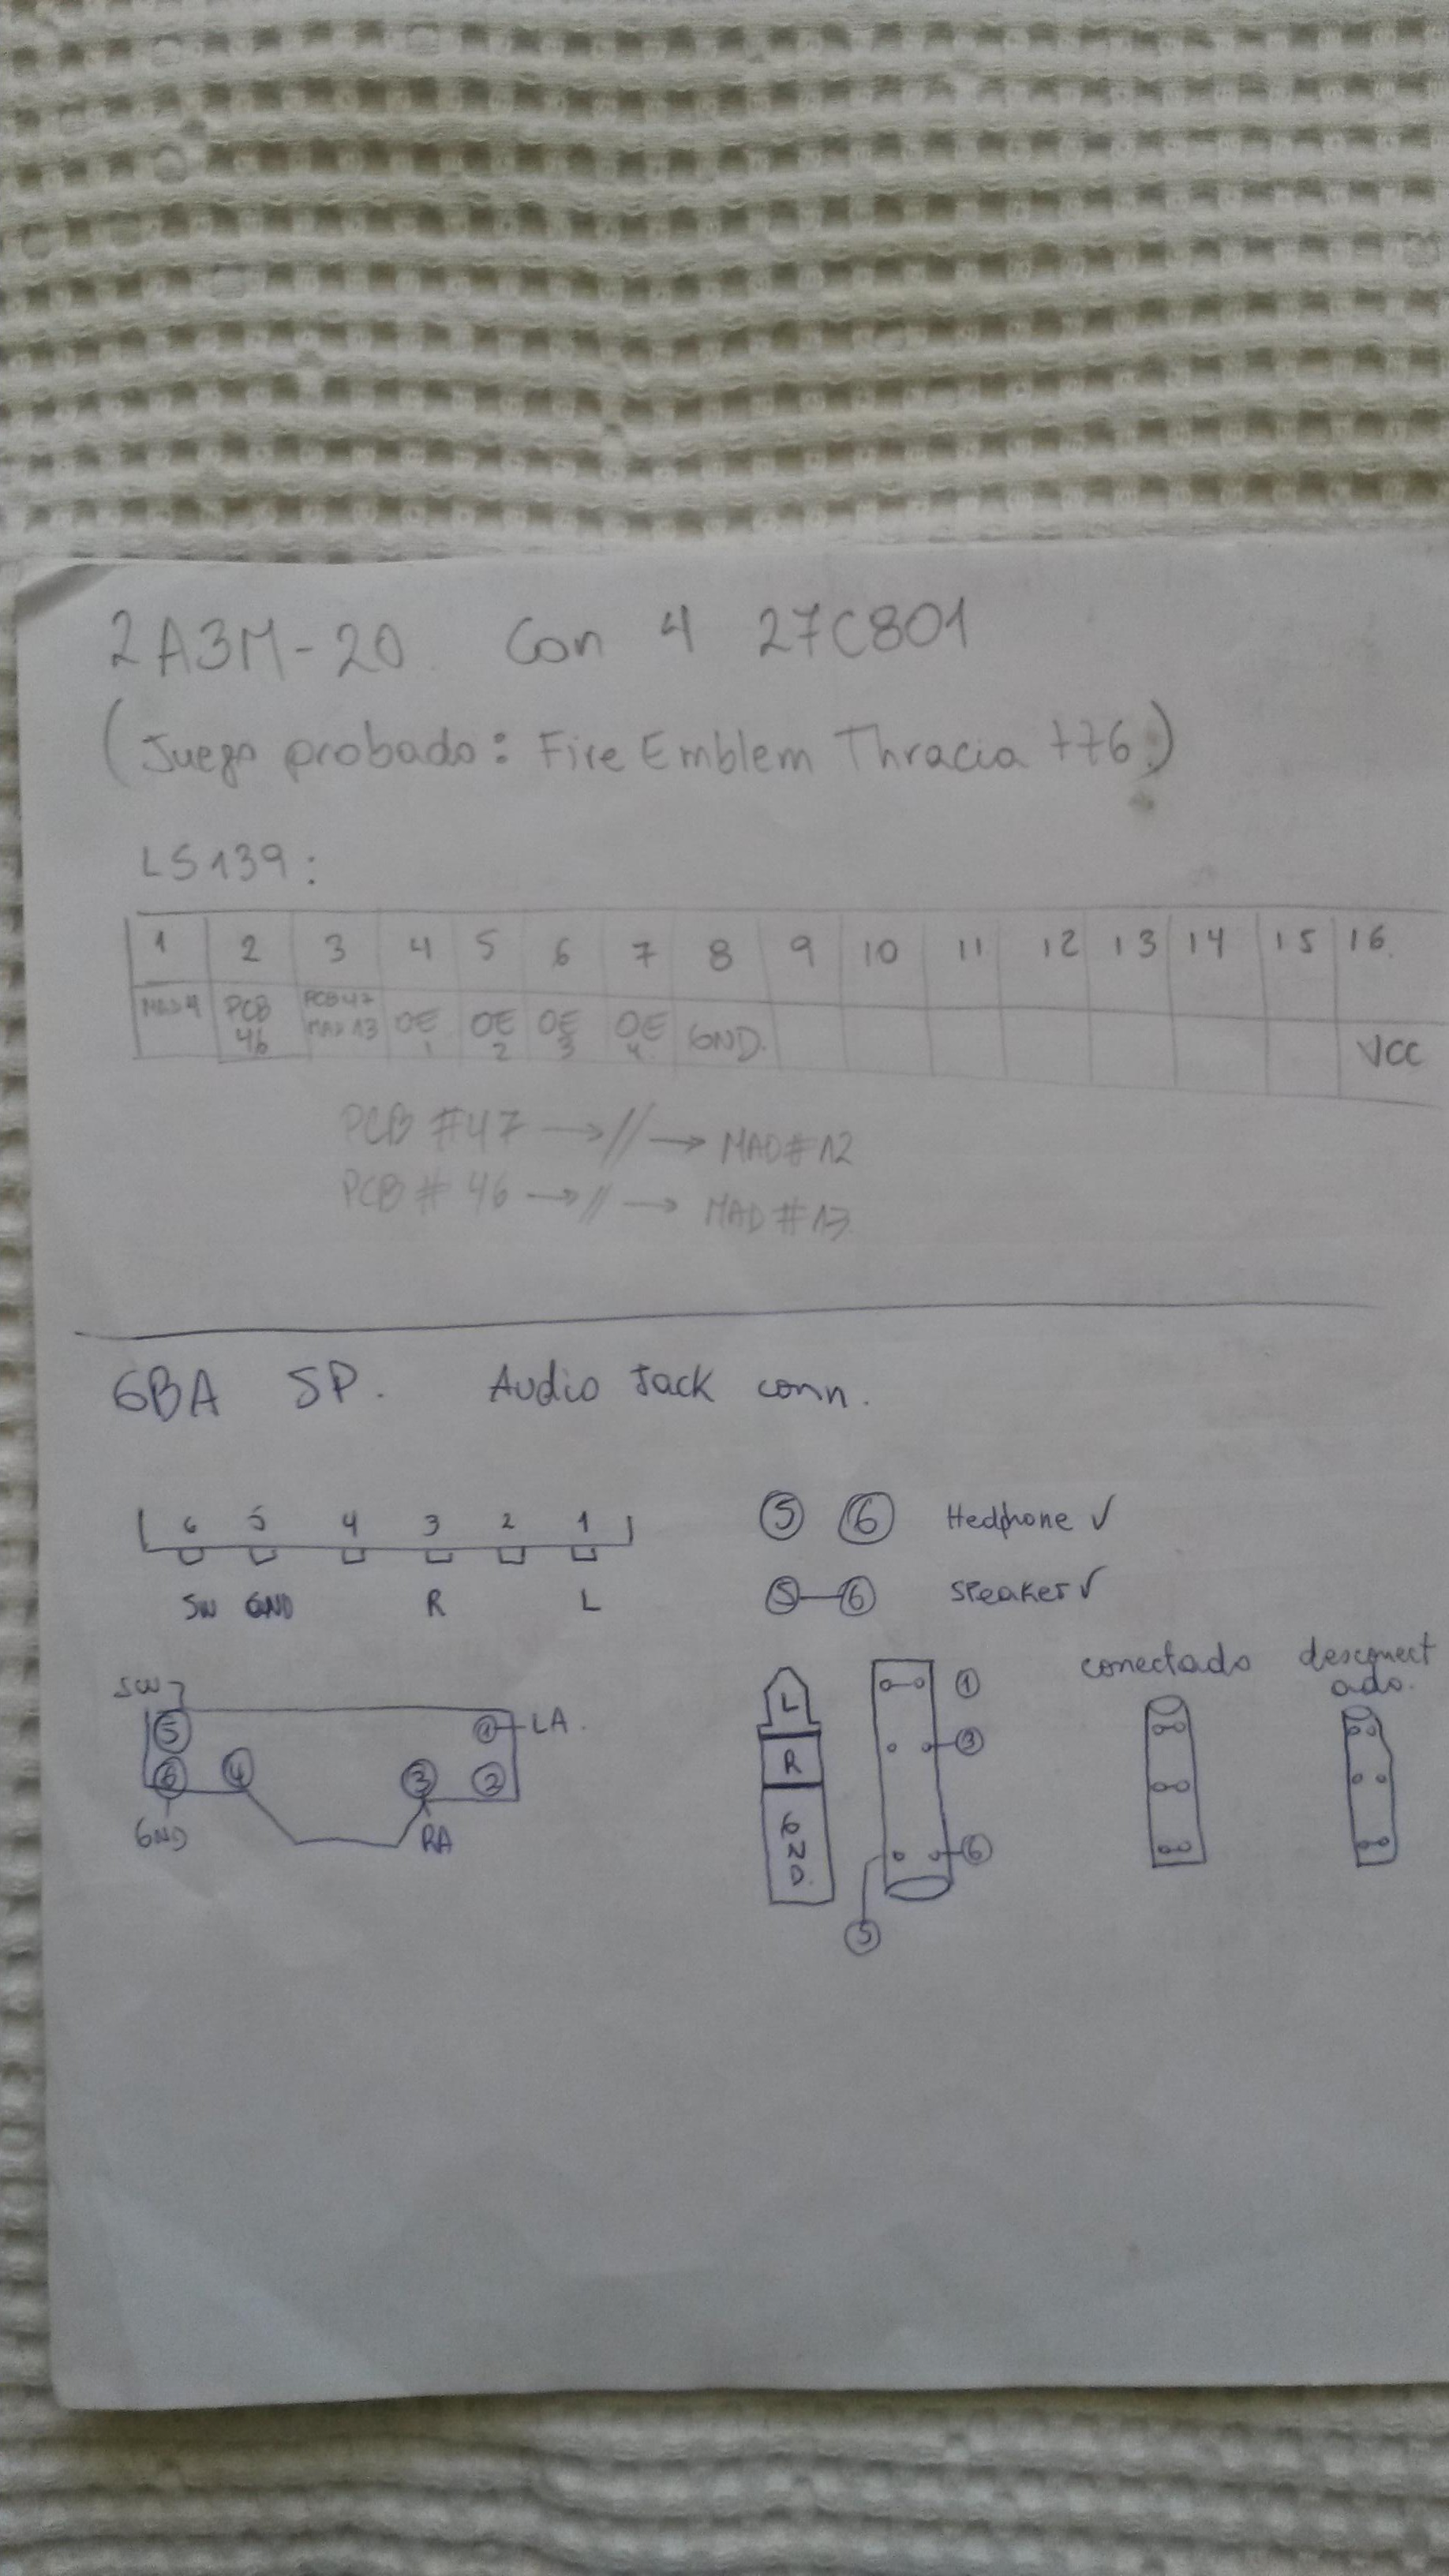 2A3M-20 Con 4 27C801
(Juego probado: Fire Emblem Thracia 776)
LS139:
1 2 3 4 5 6 7 8 9 10 11 12 13 14 15 16
MAD4 PCB 46 PCB47 MAD13 OE 1 OE 2 OE 3 OE 4 GND. VCC
PCB #47 → // → MAD#12
PCB # 46 → // → MAD #13
GBA SP. Audio Jack conn.
6 5 4 3 2 1
SW GND R L
5 6 Hedphone ✓
5—6 Speaker ✓
SW
5 1 LA.
6 4 3 2
GND RA
L
R
GND
1
3
6
5
conectado
desconect
ado.